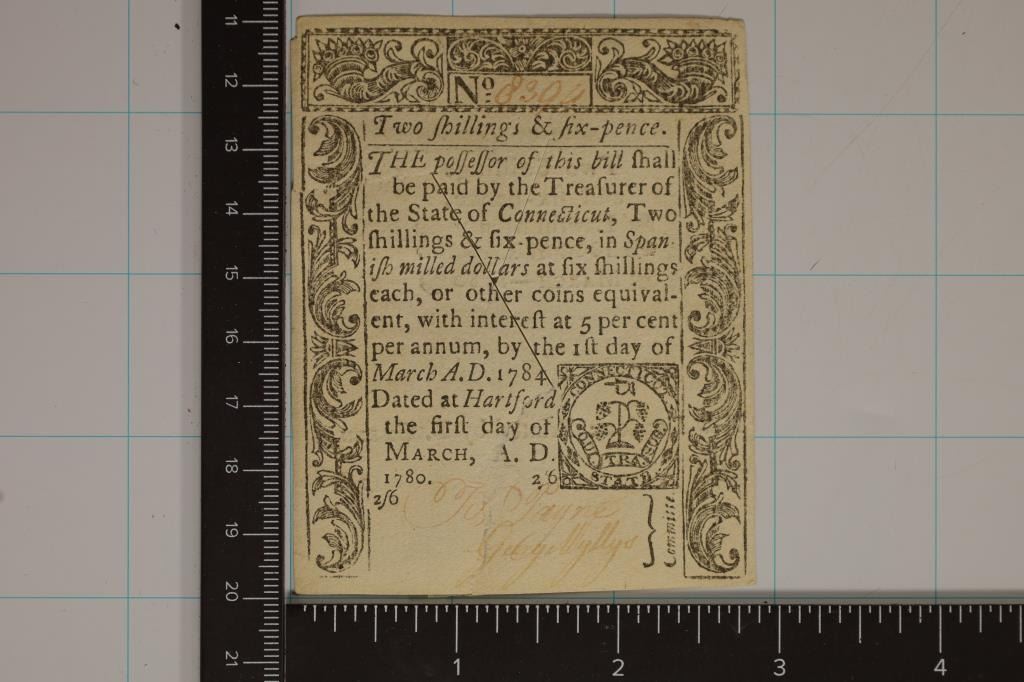 11
12
13
14
15
16
17
18
19
20
21
No: 8304
Two ſhillings & ſix-pence.
THE poſſeſſor of this bill ſhall
be paid by the Treaſurer of
the State of Connecticut, Two
ſhillings & ſix-pence, in Span-
iſh milled dollars at ſix ſhillings
each, or other coins equival-
ent, with intereſt at 5 per cent
per annum, by the 1ſt day of
March A.D. 1784
Dated at Hartford
the firſt day of
MARCH, A. D.
1780. 2/6
2/6
CONNECTICO
QUI TRA SUS
STATE
Payne
George Wyllys
Committee
1 2 3 4